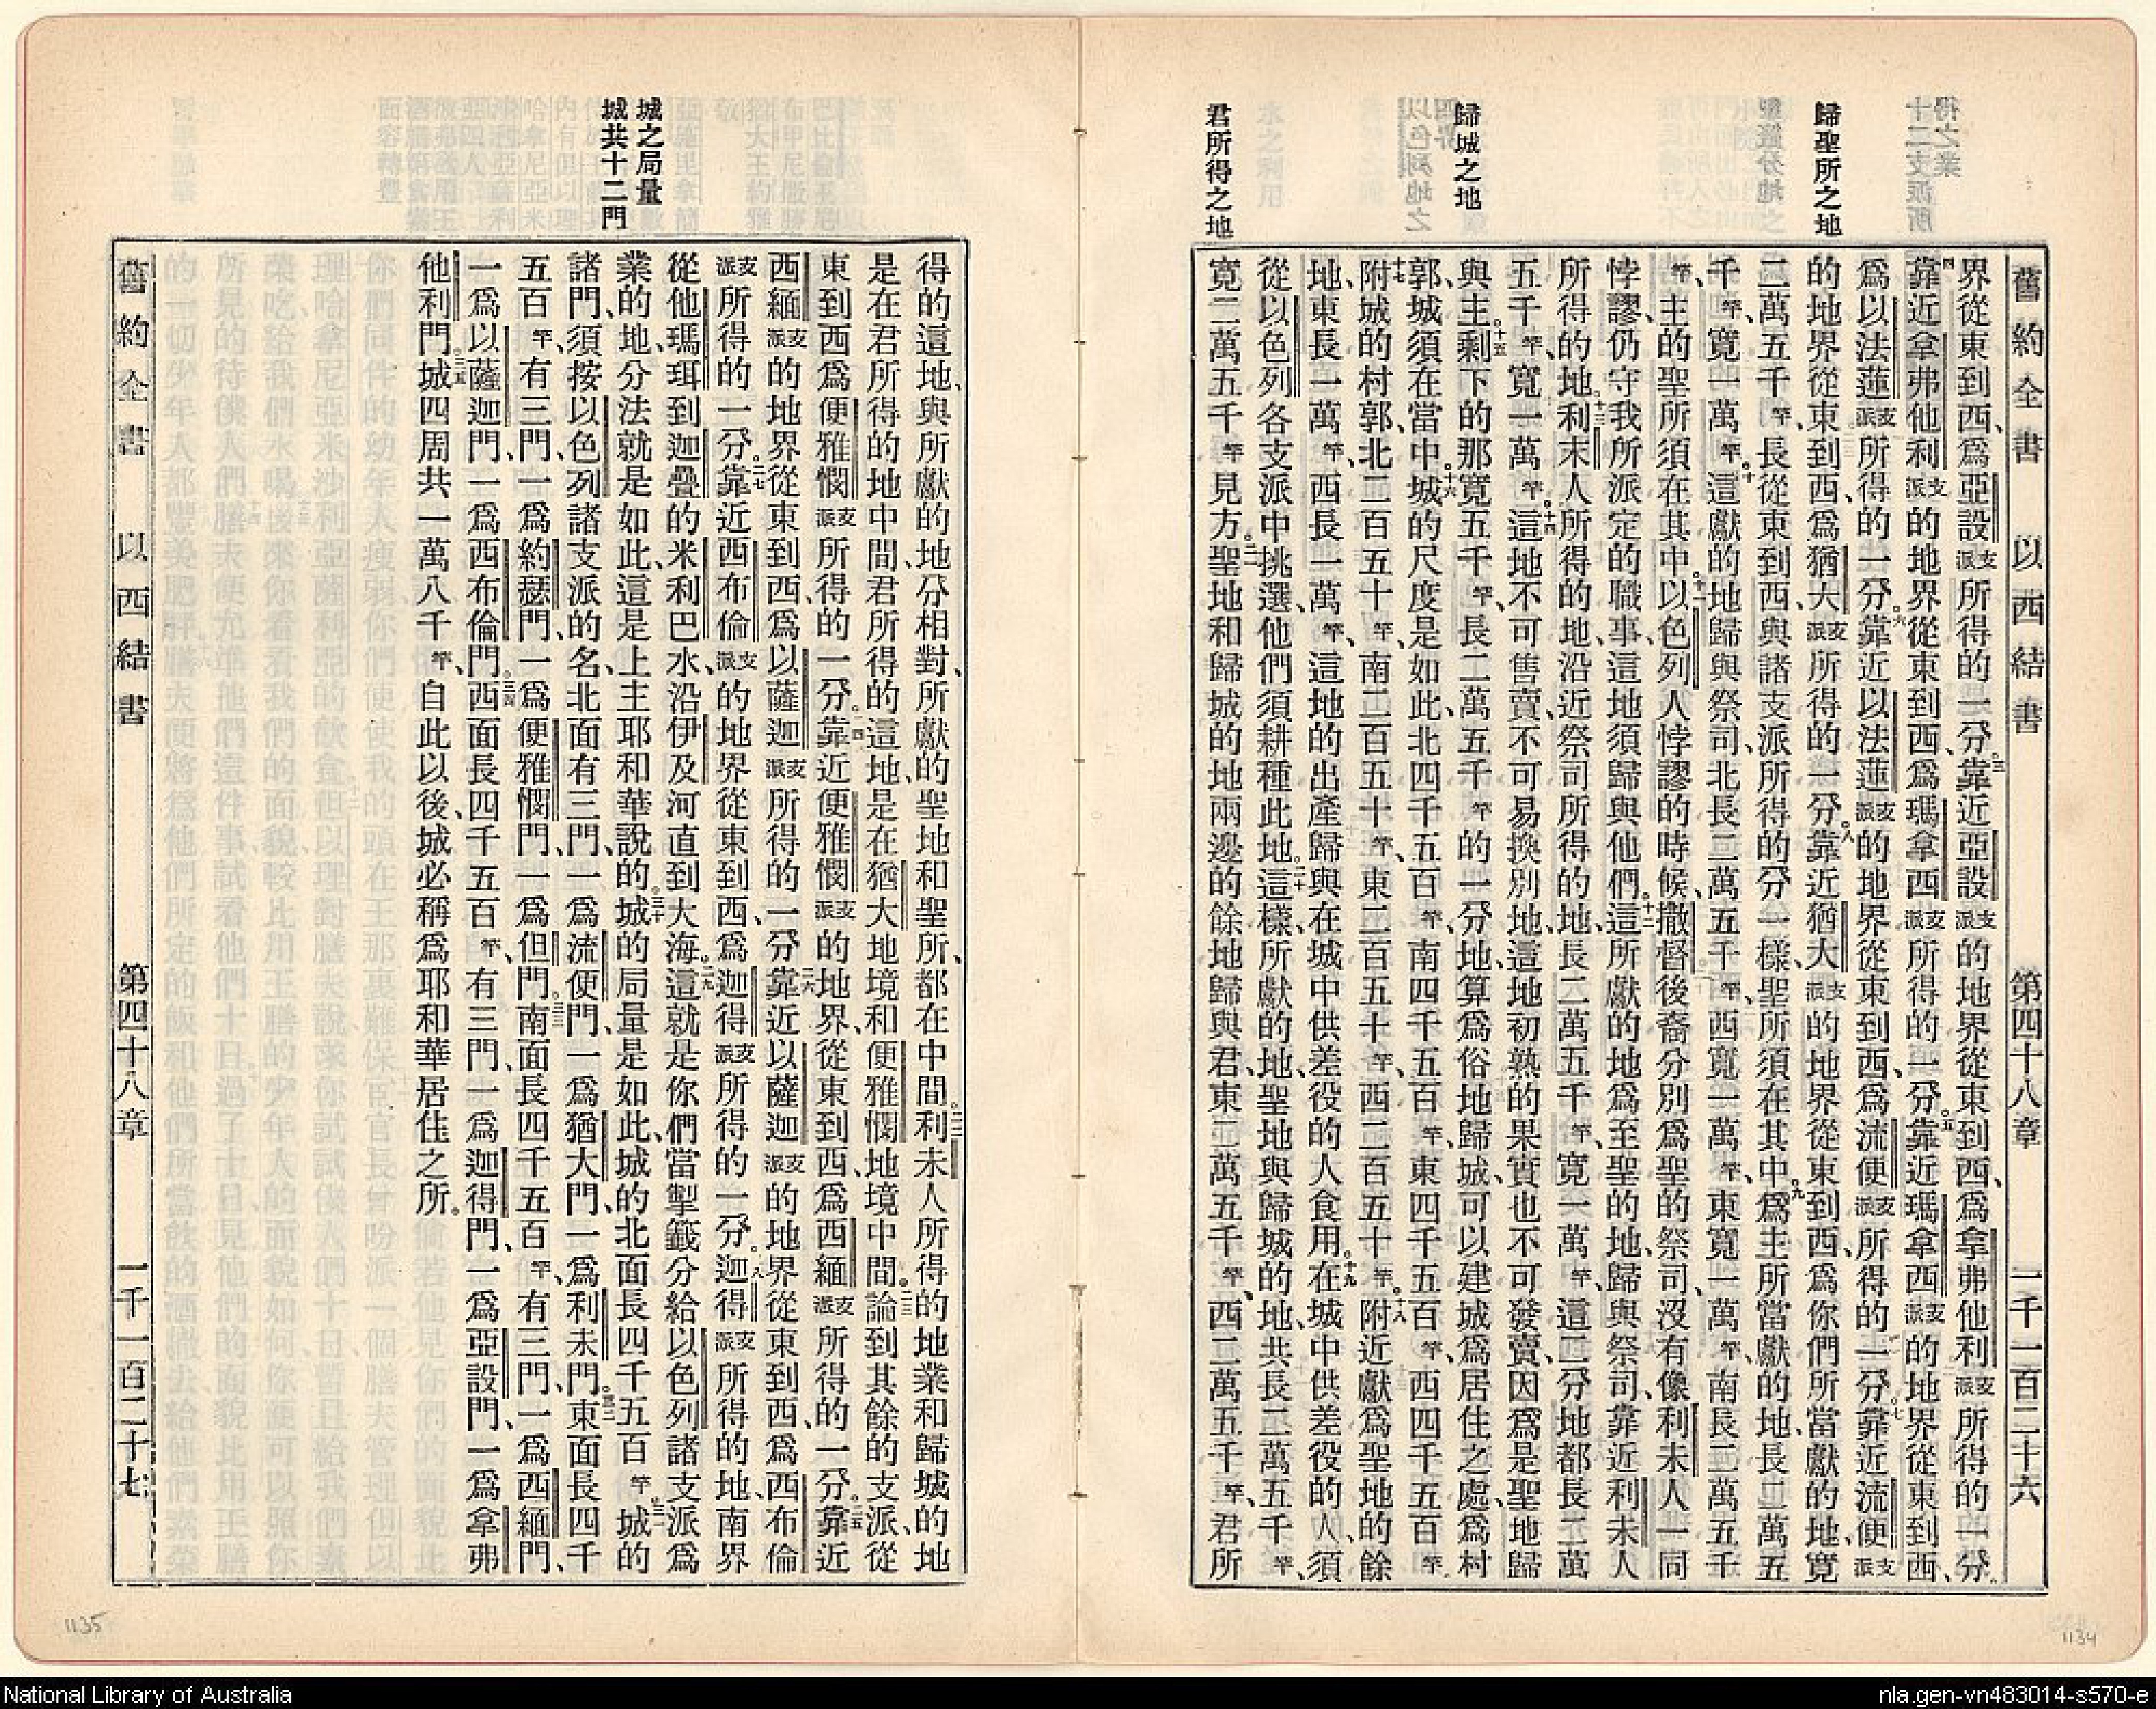 舊約全書 以西結書 第四十八章 一千一百二十六
歸聖所之地
歸城之地
君所得之地
界從東到西、爲亞設支派所得的一分。三靠近亞設支派的地界從東到西、爲拿弗他利支派所得的一分。
四靠近拿弗他利支派的地界從東到西、爲瑪拿西支派所得的一分。五靠近瑪拿西支派的地界從東到西、
爲以法蓮支派所得的一分。六靠近以法蓮支派的地界從東到西、爲流便支派所得的一分。七靠近流便支派
的地界從東到西、爲猶大支派所得的一分。八靠近猶大支派的地界從東到西、爲你們所當獻的地、寬
二萬五千竿、長從東到西、與諸支派所得的分一樣、聖所須在其中。九爲主所當獻的地、長二萬五
千竿、寬一萬竿。十這獻的地歸與祭司、北長二萬五千竿、西寬一萬竿、東寬一萬竿、南長二萬五千
竿、主的聖所須在其中。十一以色列人悖謬的時候、撒督後裔分別爲聖的祭司、沒有像利未人一同
悖謬、仍守我所派定的職事、這地須歸與他們。十二這所獻的地、爲至聖的地、歸與祭司、靠近利未人
所得的地。十三利未人所得的地、沿近祭司所得的地、長二萬五千竿、寬一萬竿、這二分地都長二萬
五千竿、寬一萬竿。十四這地不可售賣、不可易換別地、這地初熟的果實也不可發賣、因爲是聖地歸
與主。十五剩下的那寬五千竿、長二萬五千竿的一分地、算爲俗地歸城、可以建城爲居住之處、爲村
郭、城須在當中。十六城的尺度是如此、北四千五百竿、南四千五百竿、東四千五百竿、西四千五百竿。
十七附城的村郭、北二百五十竿、南二百五十竿、東二百五十竿、西二百五十竿。十八附近獻爲聖地的餘
地、東長一萬竿、西長一萬竿、這地的出產歸與在城中供差役的人食用。十九在城中供差役的人、須
從以色列各支派中挑選、他們須耕種此地。二十這樣、所獻的地、聖地與歸城的地、共長二萬五千竿、
寬二萬五千竿見方。二一聖地和歸城的地兩邊的餘地歸與君、東二萬五千竿、西二萬五千竿、君所
城之局量
城共十二門
得的這地、與所獻的地分相對、所獻的聖地和聖所、都在中間。二二利未人所得的地業和歸城的地
是在君所得的地中間、君所得的這地、是在猶大地境和便雅憫地境中間。二三論到其餘的支派、從
東到西爲便雅憫支派所得的一分。二四靠近便雅憫支派的地界、從東到西、爲西緬支派所得的一分。二五靠近
西緬支派的地界從東到西、爲以薩迦支派所得的一分。二六靠近以薩迦支派的地界從東到西、爲西布倫
支派所得的一分。二七靠近西布倫支派的地界從東到西、爲迦得支派所得的一分。二八迦得支派所得的地、南界
從他瑪珥到迦疊的米利巴水、沿伊及河直到大海。二九這就是你們當掣籤分給以色列諸支派爲
業的地、分法就是如此、這是上主耶和華說的。三十城的局量是如此、城的北面長四千五百竿。三一城的
諸門、須按以色列諸支派的名、北面有三門、一爲流便門、一爲猶大門、一爲利未門。三二東面長四千
五百竿、有三門、一爲約瑟門、一爲便雅憫門、一爲但門。三三南面長四千五百竿、有三門、一爲西緬門、
一爲以薩迦門、一爲西布倫門。三四西面長四千五百竿、有三門、一爲迦得門、一爲亞設門、一爲拿弗
他利門。三五城四周共一萬八千竿、自此以後、城必稱爲耶和華居住之所。
舊約全書 以西結書 第四十八章 一千一百二十七
1135
1134
National Library of Australia
nla.gen-vn483014-s570-e